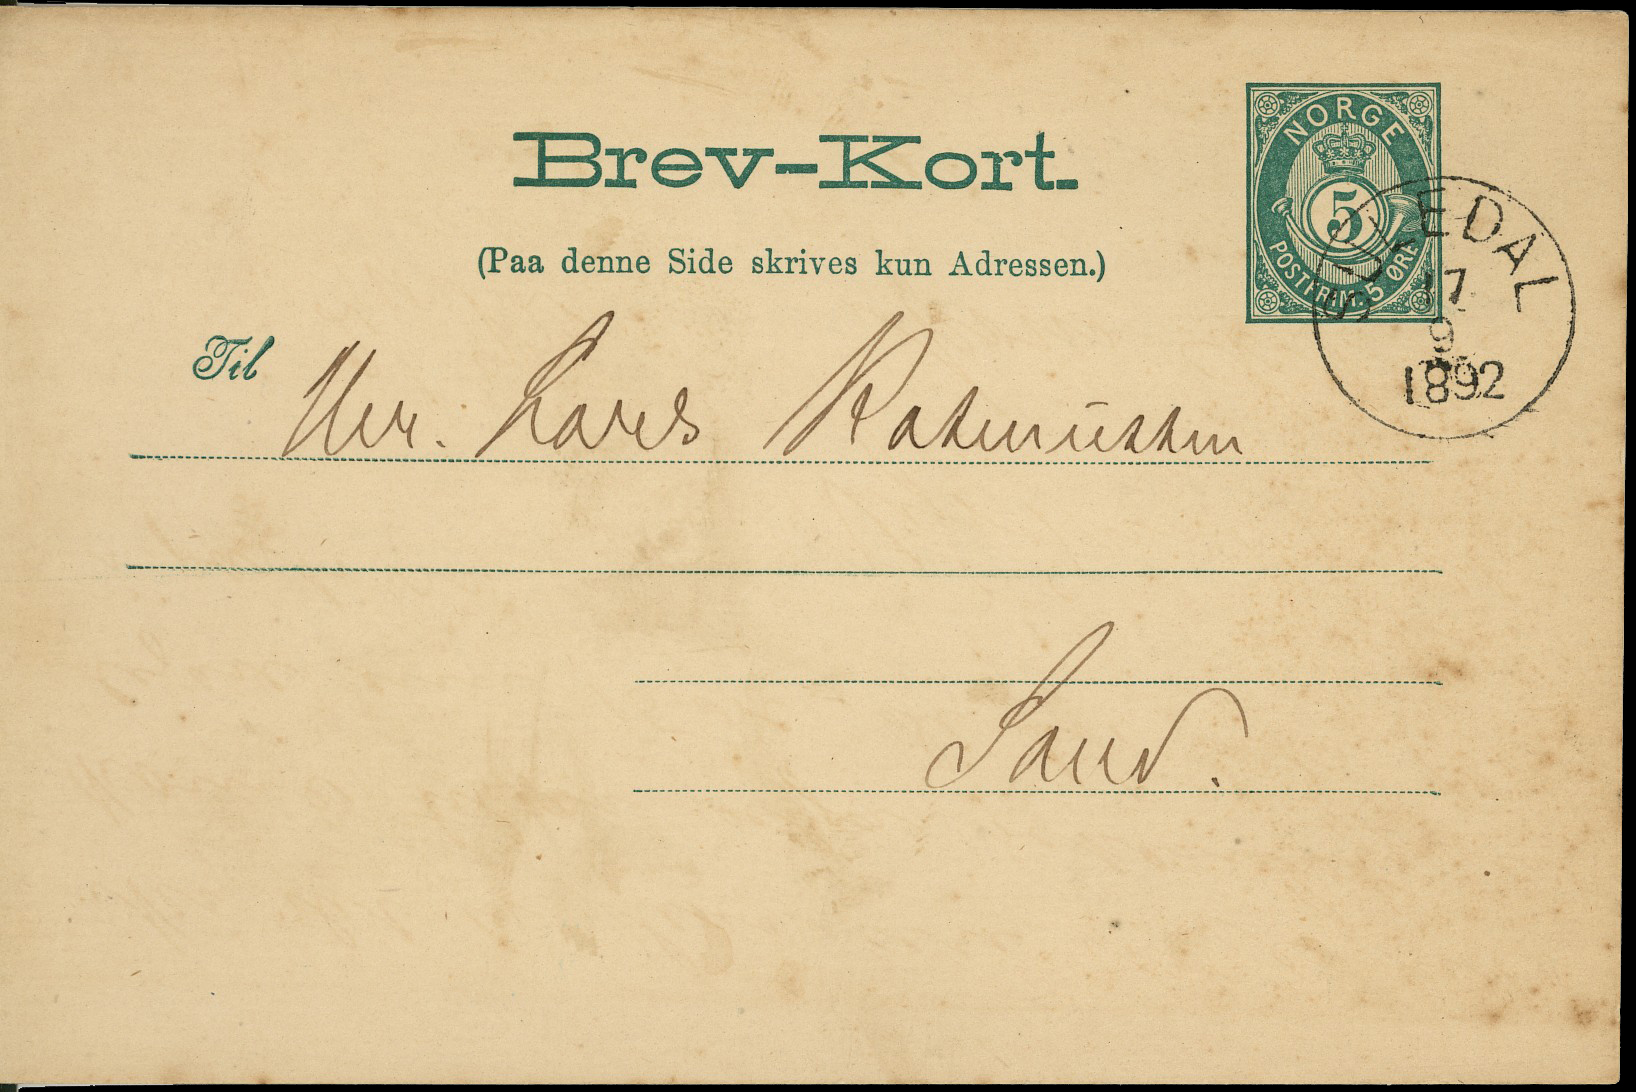 Brev-Kort.
NORGE
5
POSTFRIM. 5 ØRE
(Paa denne Side skrives kun Adressen.)
SULEDAL
17
9
1892
Til
Hr. Lars Rasmussen
Sand.